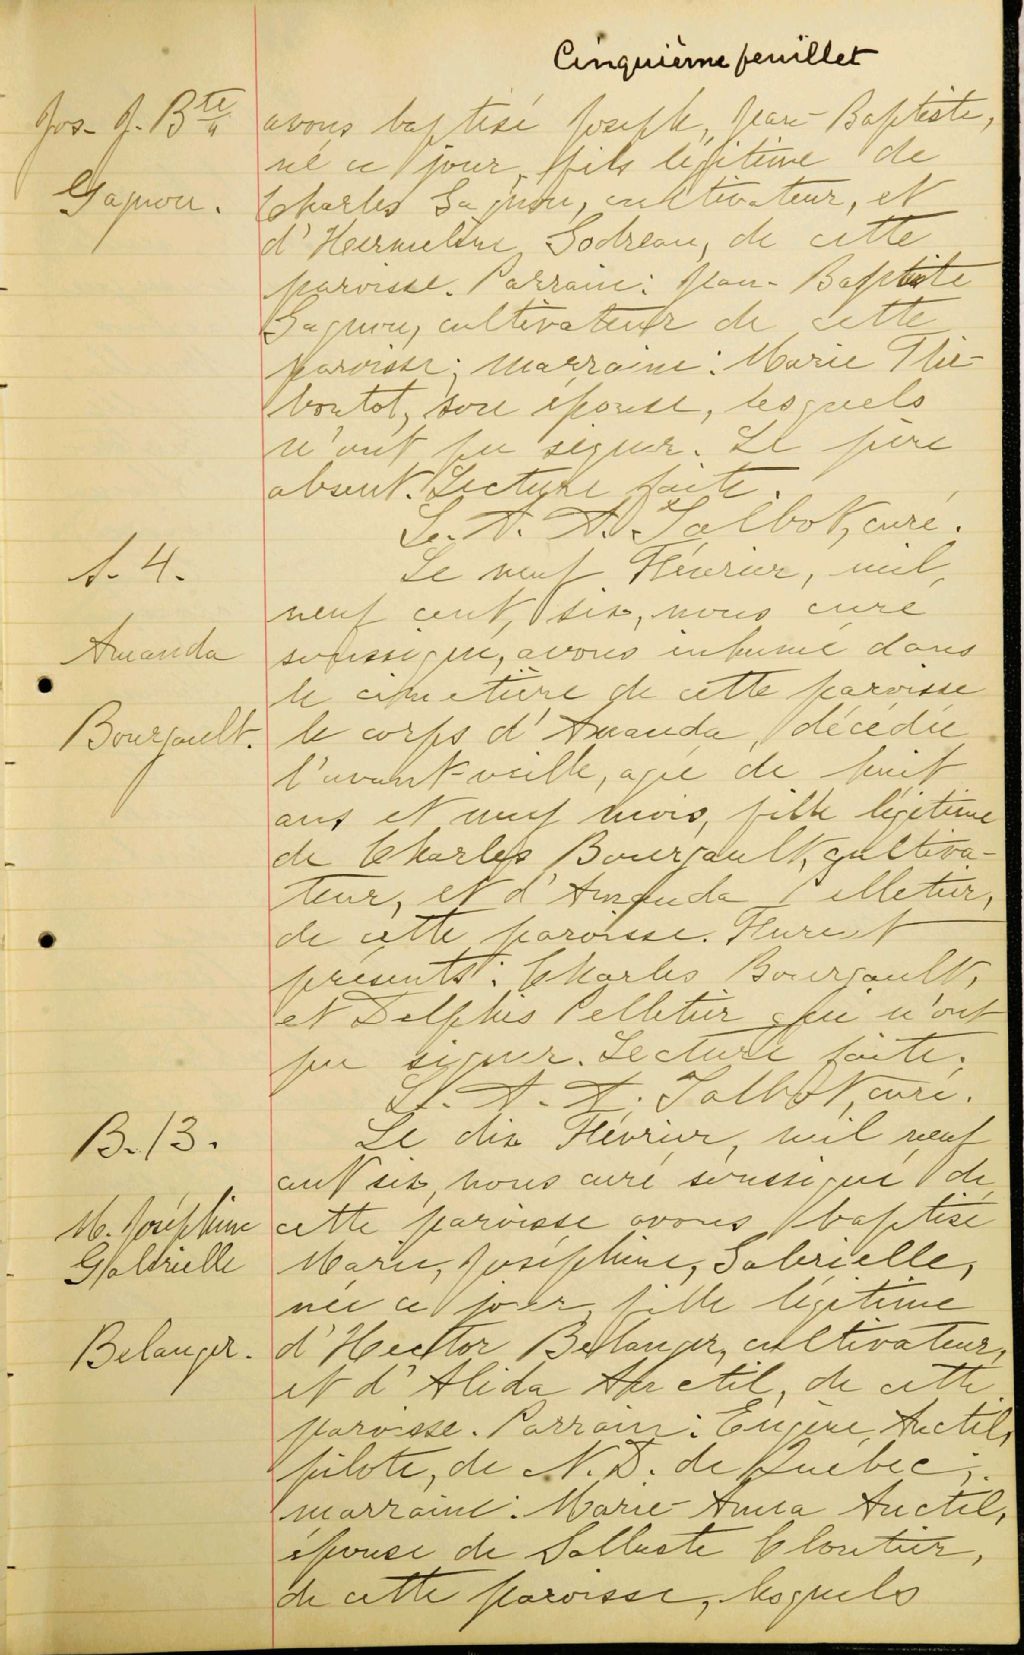 Cinquième feuillet
Jos. J. Bte
Gagnon.
avons baptisé Joseph, Jean-Baptiste,
né ce jour, fils légitime de
Charles Gagnon, cultivateur, et
d'Hermeline Godreau, de cette
paroisse. Parrain: Jean-Baptiste
Gagnon, cultivateur de cette
paroisse; marraine: Marie Thi-
boutot, son épouse, lesquels
n'ont pu signer. Le père
absent. Lecture faite.
L. A. A. Talbot, curé.
S. 4.
Amanda
Bourgault.
Le neuf Février, mil,
neuf cent, six, nous curé
soussigné, avons inhumé dans
le cimetière de cette paroisse
le corps d'Amanda, décédée
l'avant-veille, agée de huit
ans et neuf mois, fille légitime
de Charles Bourgault, cultiva-
teur, et d'Amanda Pelletier,
de cette paroisse. Furent
présents: Charles Bourgault,
et Delphis Pelletier qui n'ont
pu signer. Lecture faite.
L. A. A. Talbot, curé.
B. 13.
M. Joséphine
Gabrielle
Belanger.
Le dix Février, mil neuf
cent six, nous curé soussigné de
cette paroisse avons baptisé
Marie, Joséphine, Gabrielle,
née ce jour, fille légitime
d'Hector Belanger, cultivateur,
et d'Alida Anctil, de cette
paroisse. Parrain: Eugène Anctil,
pilote, de N. D. de Québec;
marraine: Marie-Anna Anctil,
épouse de Salluste Cloutier,
de cette paroisse, lesquels